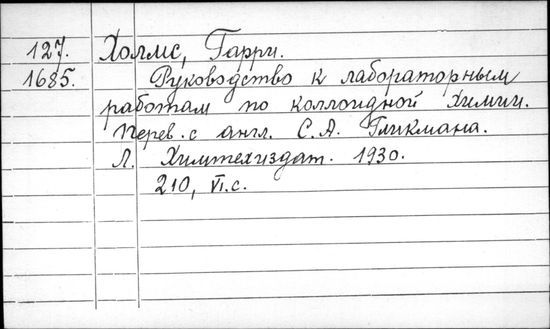 127. Холмс, Гарри.
1685. Руководство к лабораторным
работам по коллоидной химии.
Перев. с англ. С.А. Гликмана.
Л. Химтехиздат. 1930.
210, VI.с.